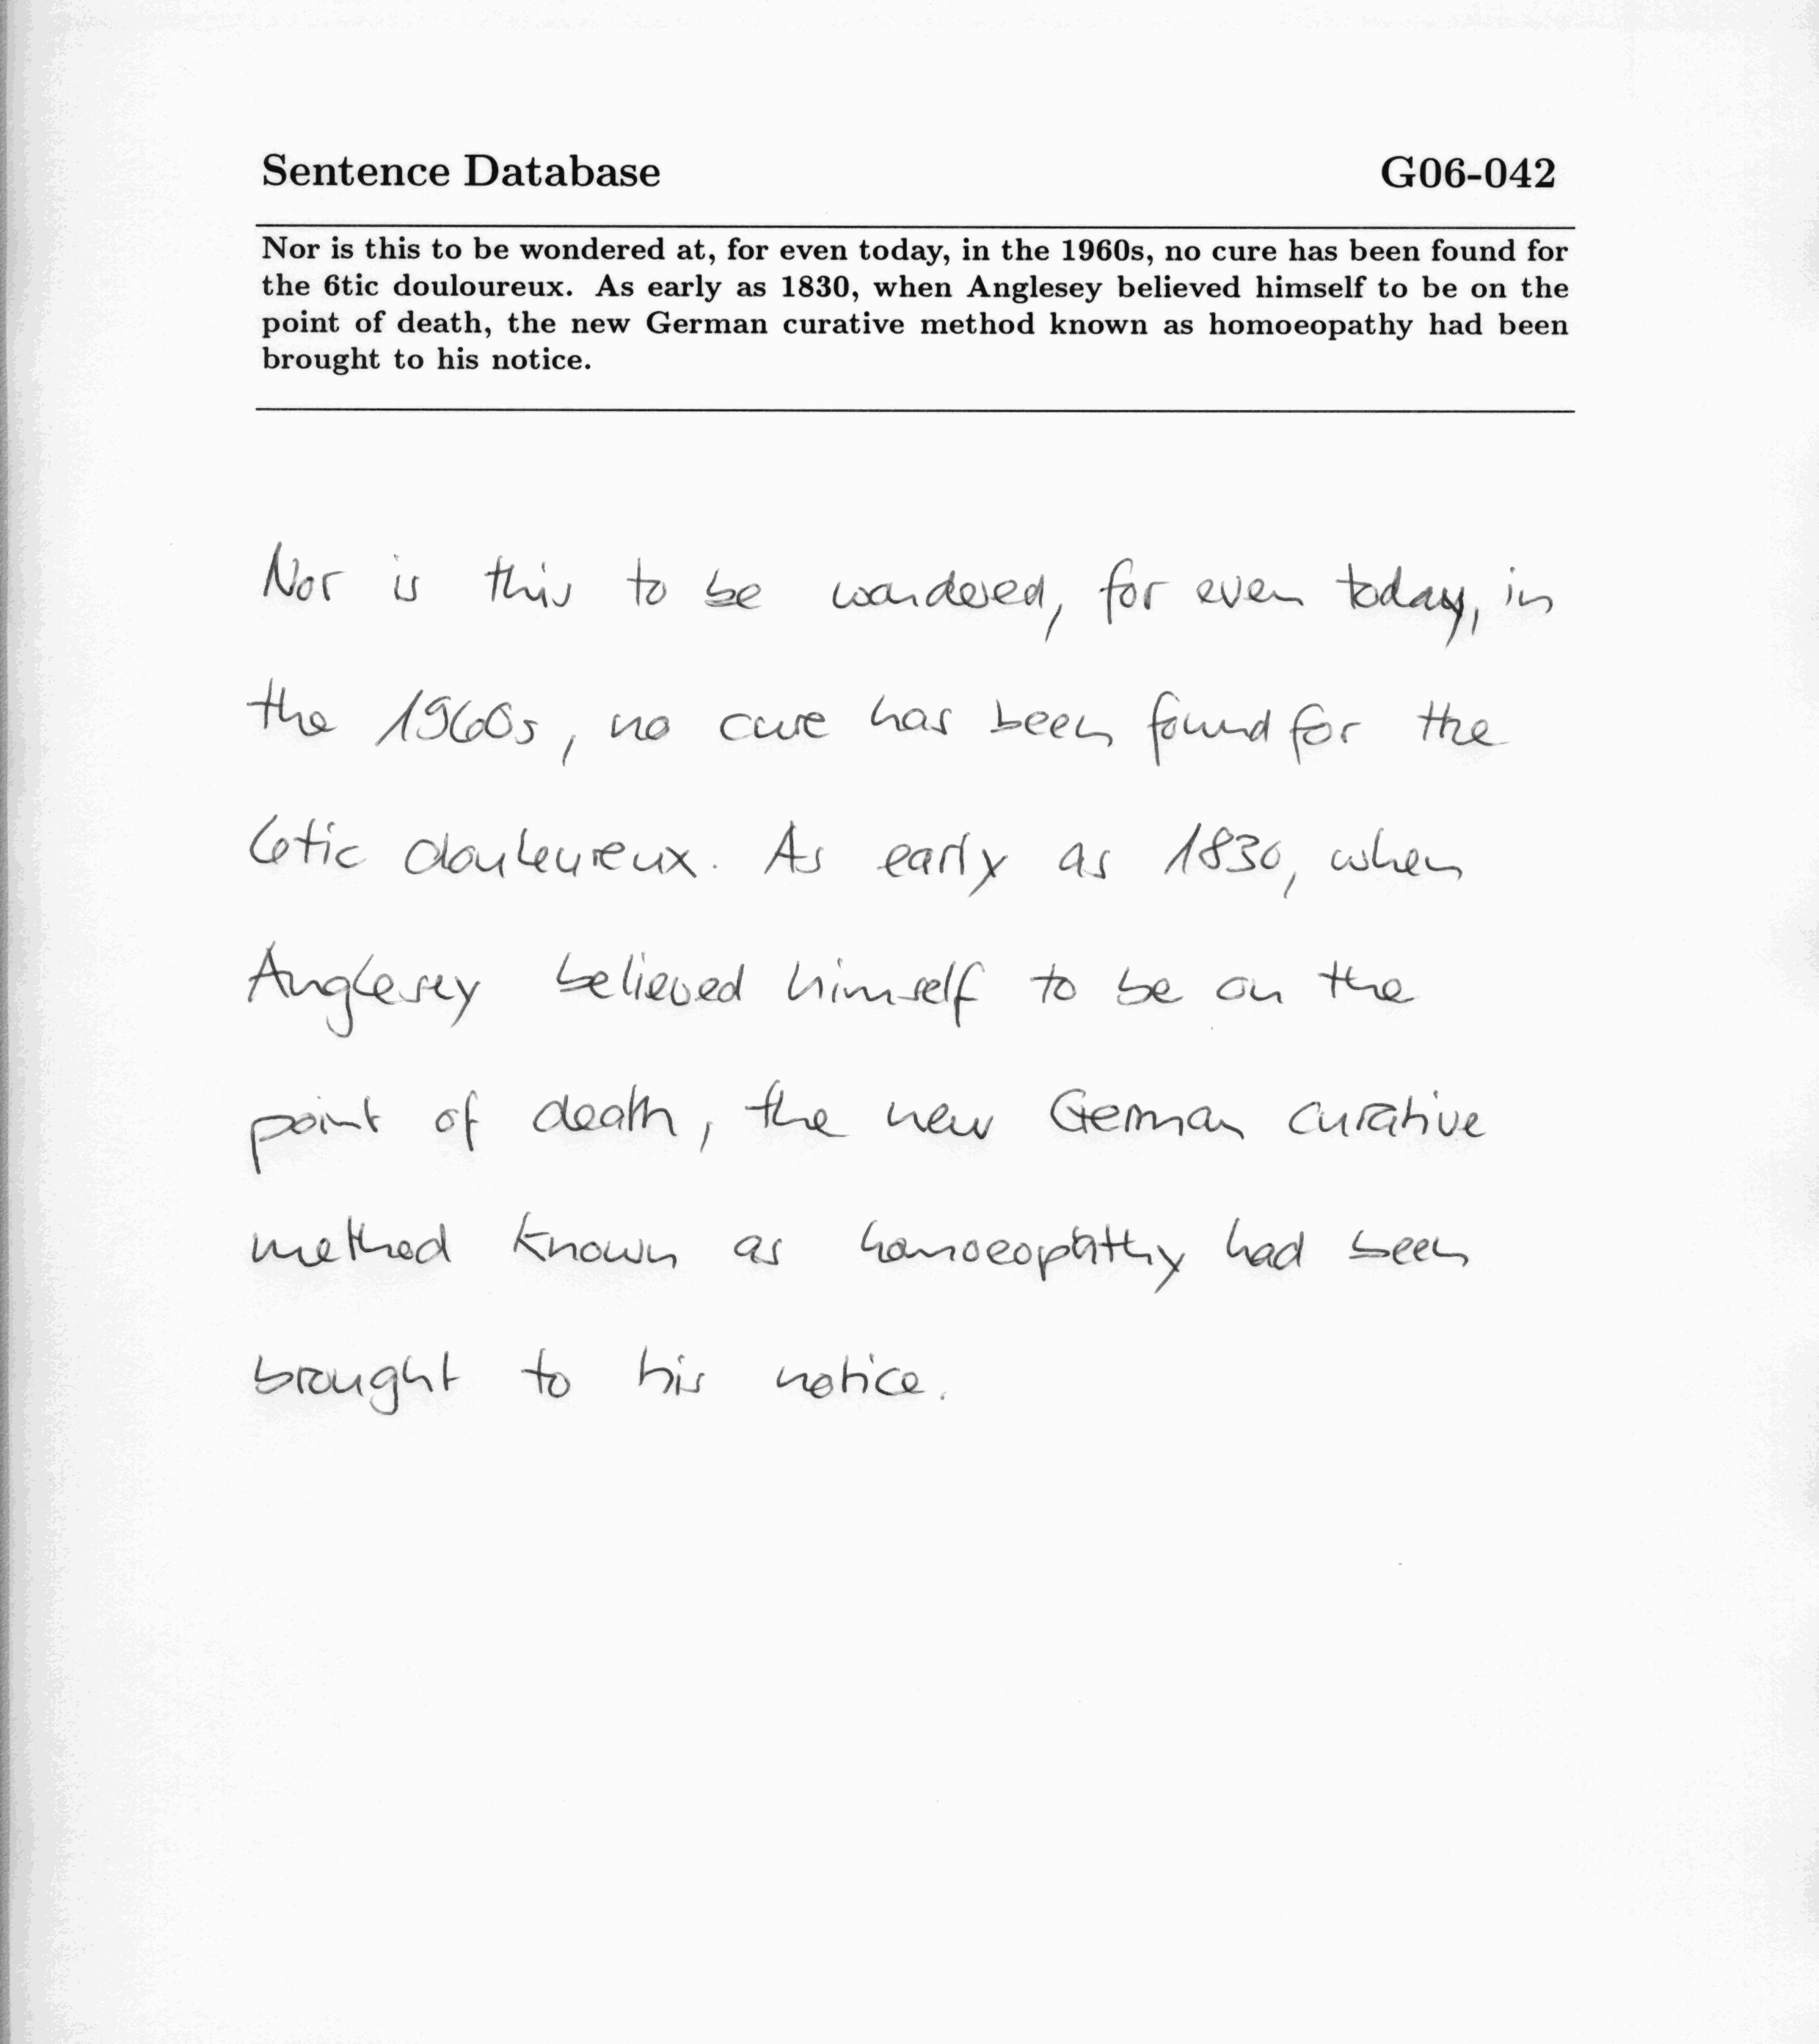 Sentence Database G06-042
Nor is this to be wondered at, for even today, in the 1960s, no cure has been found for
the 6tic douloureux. As early as 1830, when Anglesey believed himself to be on the
point of death, the new German curative method known as homoeopathy had been
brought to his notice.
Nor is this to be wondered, for even today, in
the 1960s, no cure has been found for the
6tic douleureux. As early as 1830, when
Anglesey believed himself to be on the
point of death, the new German curative
method known as homoeopathy had been
brought to his notice.